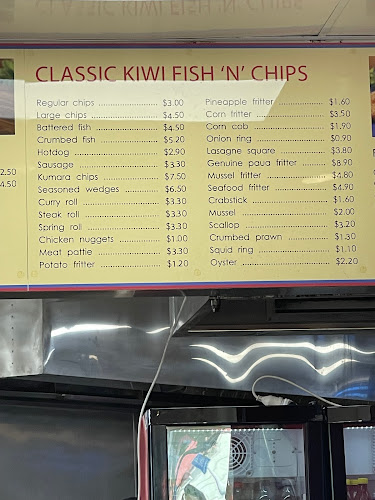 CLASSIC KIWI FISH 'N' CHIPS
CLASSIC KIWI FISH 'N' CHIPS
Regular chips ........ $3.00
Large chips ........ $4.50
Battered fish ........ $4.50
Crumbed fish ........ $5.20
Hotdog ........ $2.90
Sausage ........ $3.30
Kumara chips ........ $7.50
Seasoned wedges ........ $6.50
Curry roll ........ $3.30
Steak roll ........ $3.30
Spring roll ........ $3.30
Chicken nuggets ........ $1.00
Meat pattie ........ $3.30
Potato fritter ........ $1.20
Pineapple fritter ........ $1.60
Corn fritter ........ $3.50
Corn cob ........ $1.90
Onion ring ........ $0.90
Lasagne square ........ $3.80
Genuine paua fritter ........ $8.90
Mussel fritter ........ $4.80
Seafood fritter ........ $4.90
Crabstick ........ $1.60
Mussel ........ $2.00
Scallop ........ $3.20
Crumbed prawn ........ $1.30
Squid ring ........ $1.10
Oyster ........ $2.20
2.50
4.50